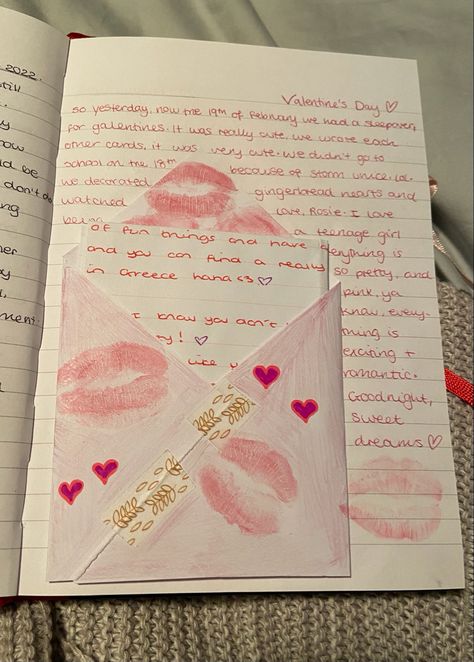 2022.
still
y
ow
ld be
don't do
ng
her
y
d,
ment.
Valentine's Day ♡
so yesterday, now the 19th of February we had a sleepover,
for galentines. It was really cute, we wrote each
other cards, it was very cute. We didn't go to
school on the 18th because of storm unice, lol.
we decorated gingerbread hearts and
watched Love, Rosie. I love
being a teenage girl
everything is
so pretty, and
pink, ya
know, every-
thing is
exciting +
romantic.
Goodnight,
sweet
dreams ♡
of fun things and have
and you can find a really
in Greece haha <3 ♡
I know you don't
y! ♡
like y